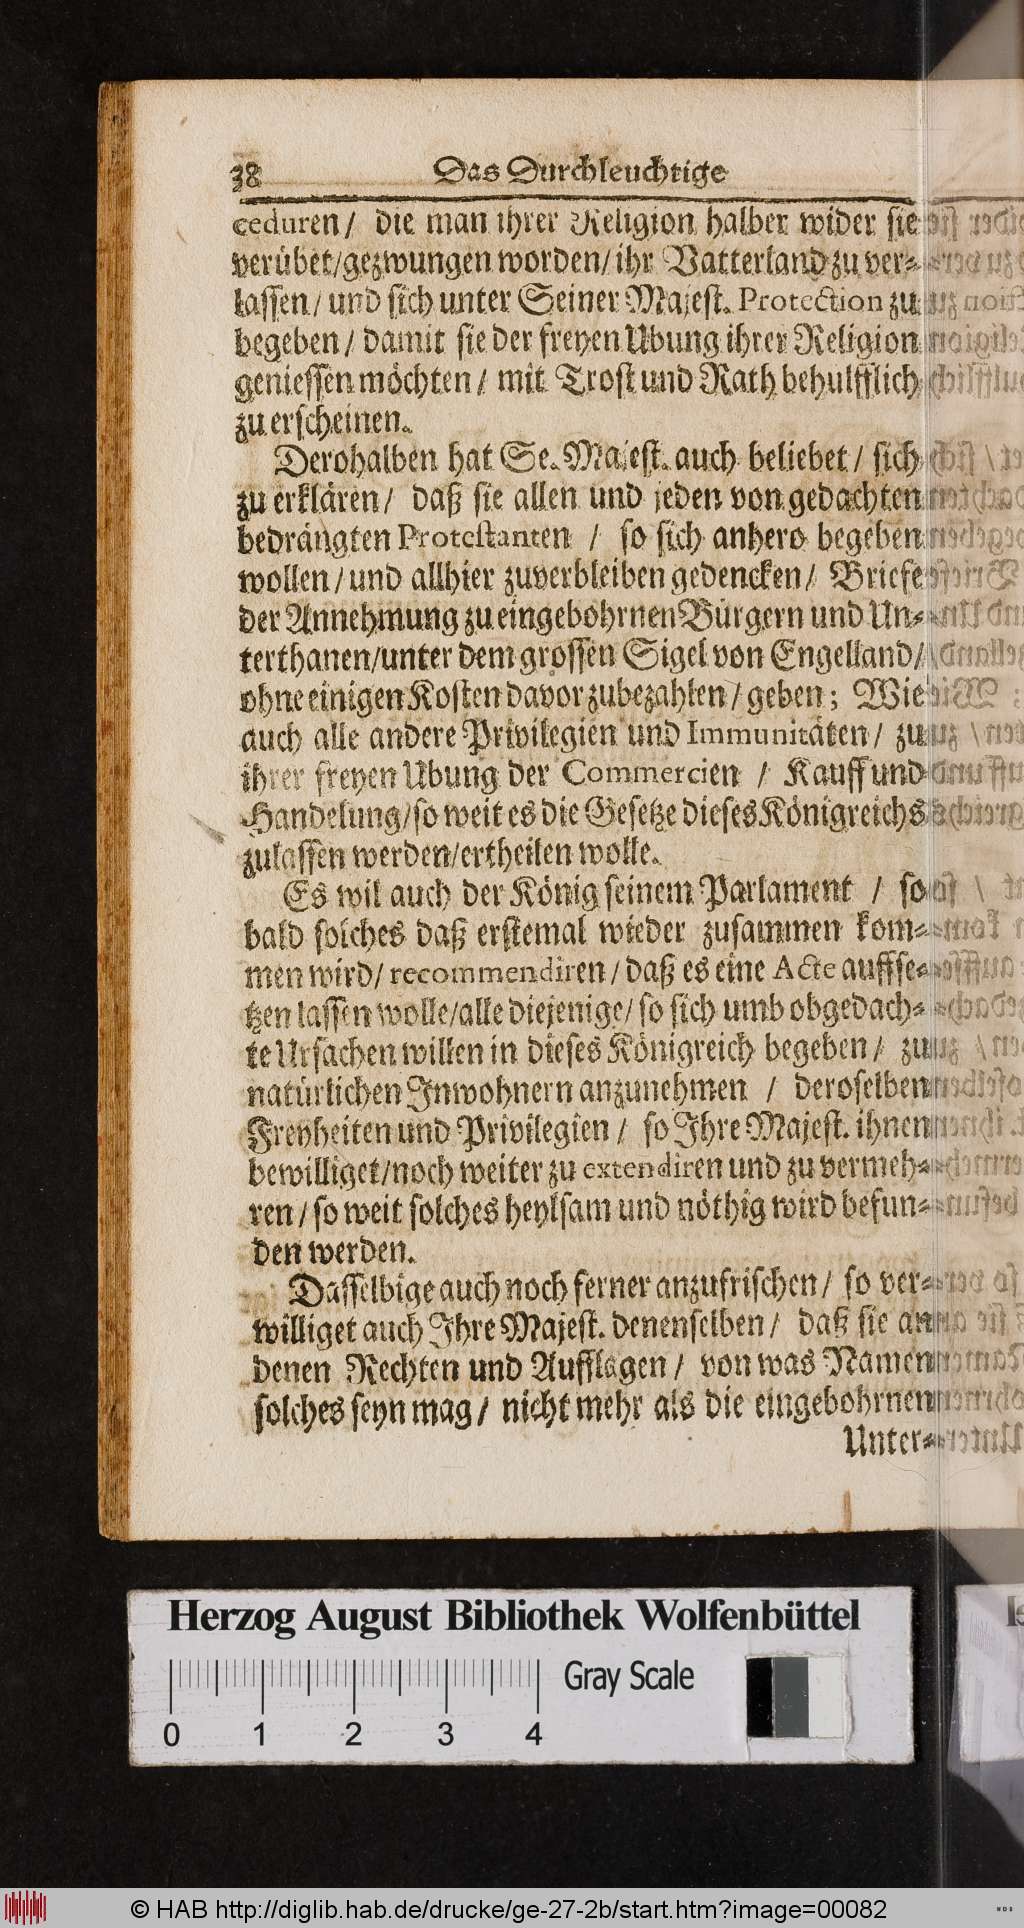 38 Das Durchleuchtige
ceduren / die man ihrer Religion halber wider sie
verübet/gezwungen worden/ihr Vatterland zu ver-
lassen/ und sich unter Seiner Majest. Protection zu
begeben / damit sie der freyen Ubung ihrer Religion
geniessen möchten / mit Trost und Rath behulfflich
zu erscheinen.
Derohalben hat Se. Majest. auch beliebet / sich
zu erklären / daß sie allen und jeden von gedachten
bedrängten Protestanten / so sich anhero begeben
wollen / und allhier zuverbleiben gedencken / Briefe
der Annehmung zu eingebohrnen Bürgern und Un-
terthanen/unter dem grossen Sigel von Engelland/
ohne einigen Kosten davor zubezahlen / geben; Wie
auch alle andere Privilegien und Immunitäten / zu
ihrer freyen Ubung der Commercien / Kauff und
Handelung/so weit es die Gesetze dieses Königreichs
zulassen werden/ertheilen wolle.
Es wil auch der König seinem Parlament / so
bald solches daß erstemal wieder zusammen kom-
men wird/ recommendiren / daß es eine Acte auffse-
tzen lassen wolle/alle diejenige/ so sich umb obgedach-
te Ursachen willen in dieses Königreich begeben / zu
natürlichen Inwohnern anzunehmen / deroselben
Freyheiten und Privilegien / so Ihre Majest. ihnen
bewilliget/noch weiter zu extendiren und zu vermeh-
ren / so weit solches heylsam und nöthig wird befun-
den werden.
Dasselbige auch noch ferner anzufrischen / so ver-
williget auch Ihre Majest. denenselben / daß sie an
denen Rechten und Aufflagen / von was Namen
solches seyn mag / nicht mehr als die eingebohrnen
Unter-
Herzog August Bibliothek Wolfenbüttel
0 1 2 3 4 Gray Scale
© HAB http://diglib.hab.de/drucke/ge-27-2b/start.htm?image=00082